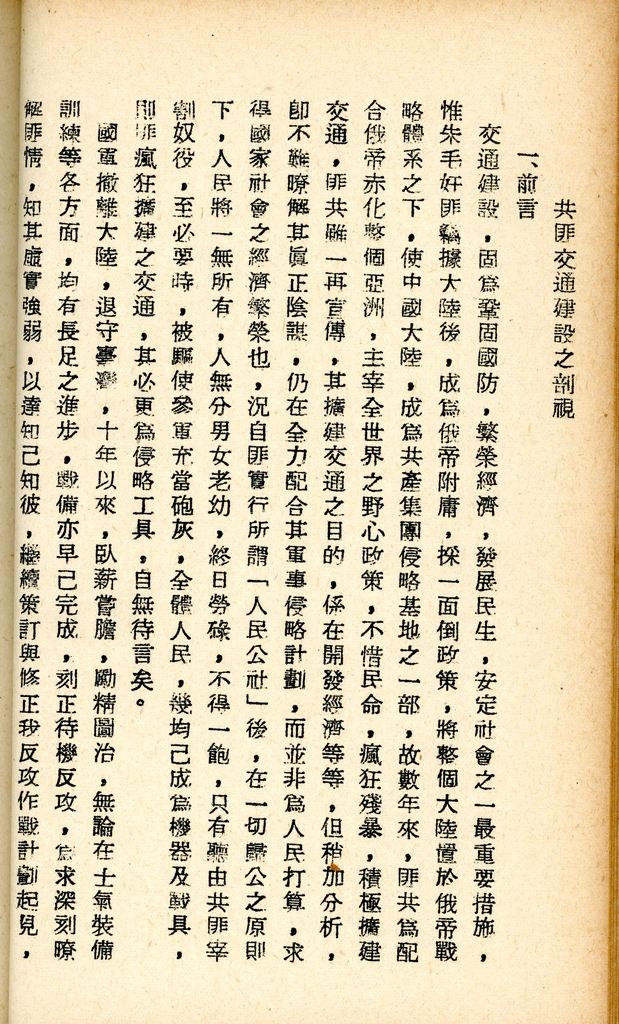 共匪交通建設之剖視
一、前言
交通建設，固為鞏固國防，繁榮經濟，發展民生，安定社會之一最重要措施，
惟朱毛奸匪竊據大陸後，成為俄帝附庸，採一面倒政策，將整個大陸置於俄帝戰
略體系之下，使中國大陸，成為共產集團侵略基地之一部，故數年來，匪共為配
合俄帝赤化整個亞洲，主宰全世界之野心政策，不惜民命，瘋狂殘暴，積極擴建
交通，匪共雖一再宣傳，其擴建交通之目的，係在開發經濟等等，但稍加分析，
卽不難瞭解其眞正陰謀，仍在全力配合其軍事侵略計劃，而並非為人民打算，求
得國家社會之經濟繁榮也，況自匪實行所謂「人民公社」後，在一切歸公之原則
下，人民將一無所有，人無分男女老幼，終日勞碌，不得一飽，只有聽由共匪宰
割奴役，至必要時，被驅使參軍充當砲灰，全體人民，幾均已成為機器及戰具，
則匪瘋狂擴建之交通，其必更為侵略工具，自無待言矣。
國軍撤離大陸，退守臺灣，十年以來，臥薪嘗膽，勵精圖治，無論在士氣裝備
訓練等各方面，均有長足之進步，戰備亦早已完成，刻正待機反攻，為求深刻瞭
解匪情，知其虛實強弱，以達知己知彼，繼續策訂與修正我反攻作戰計劃起見，